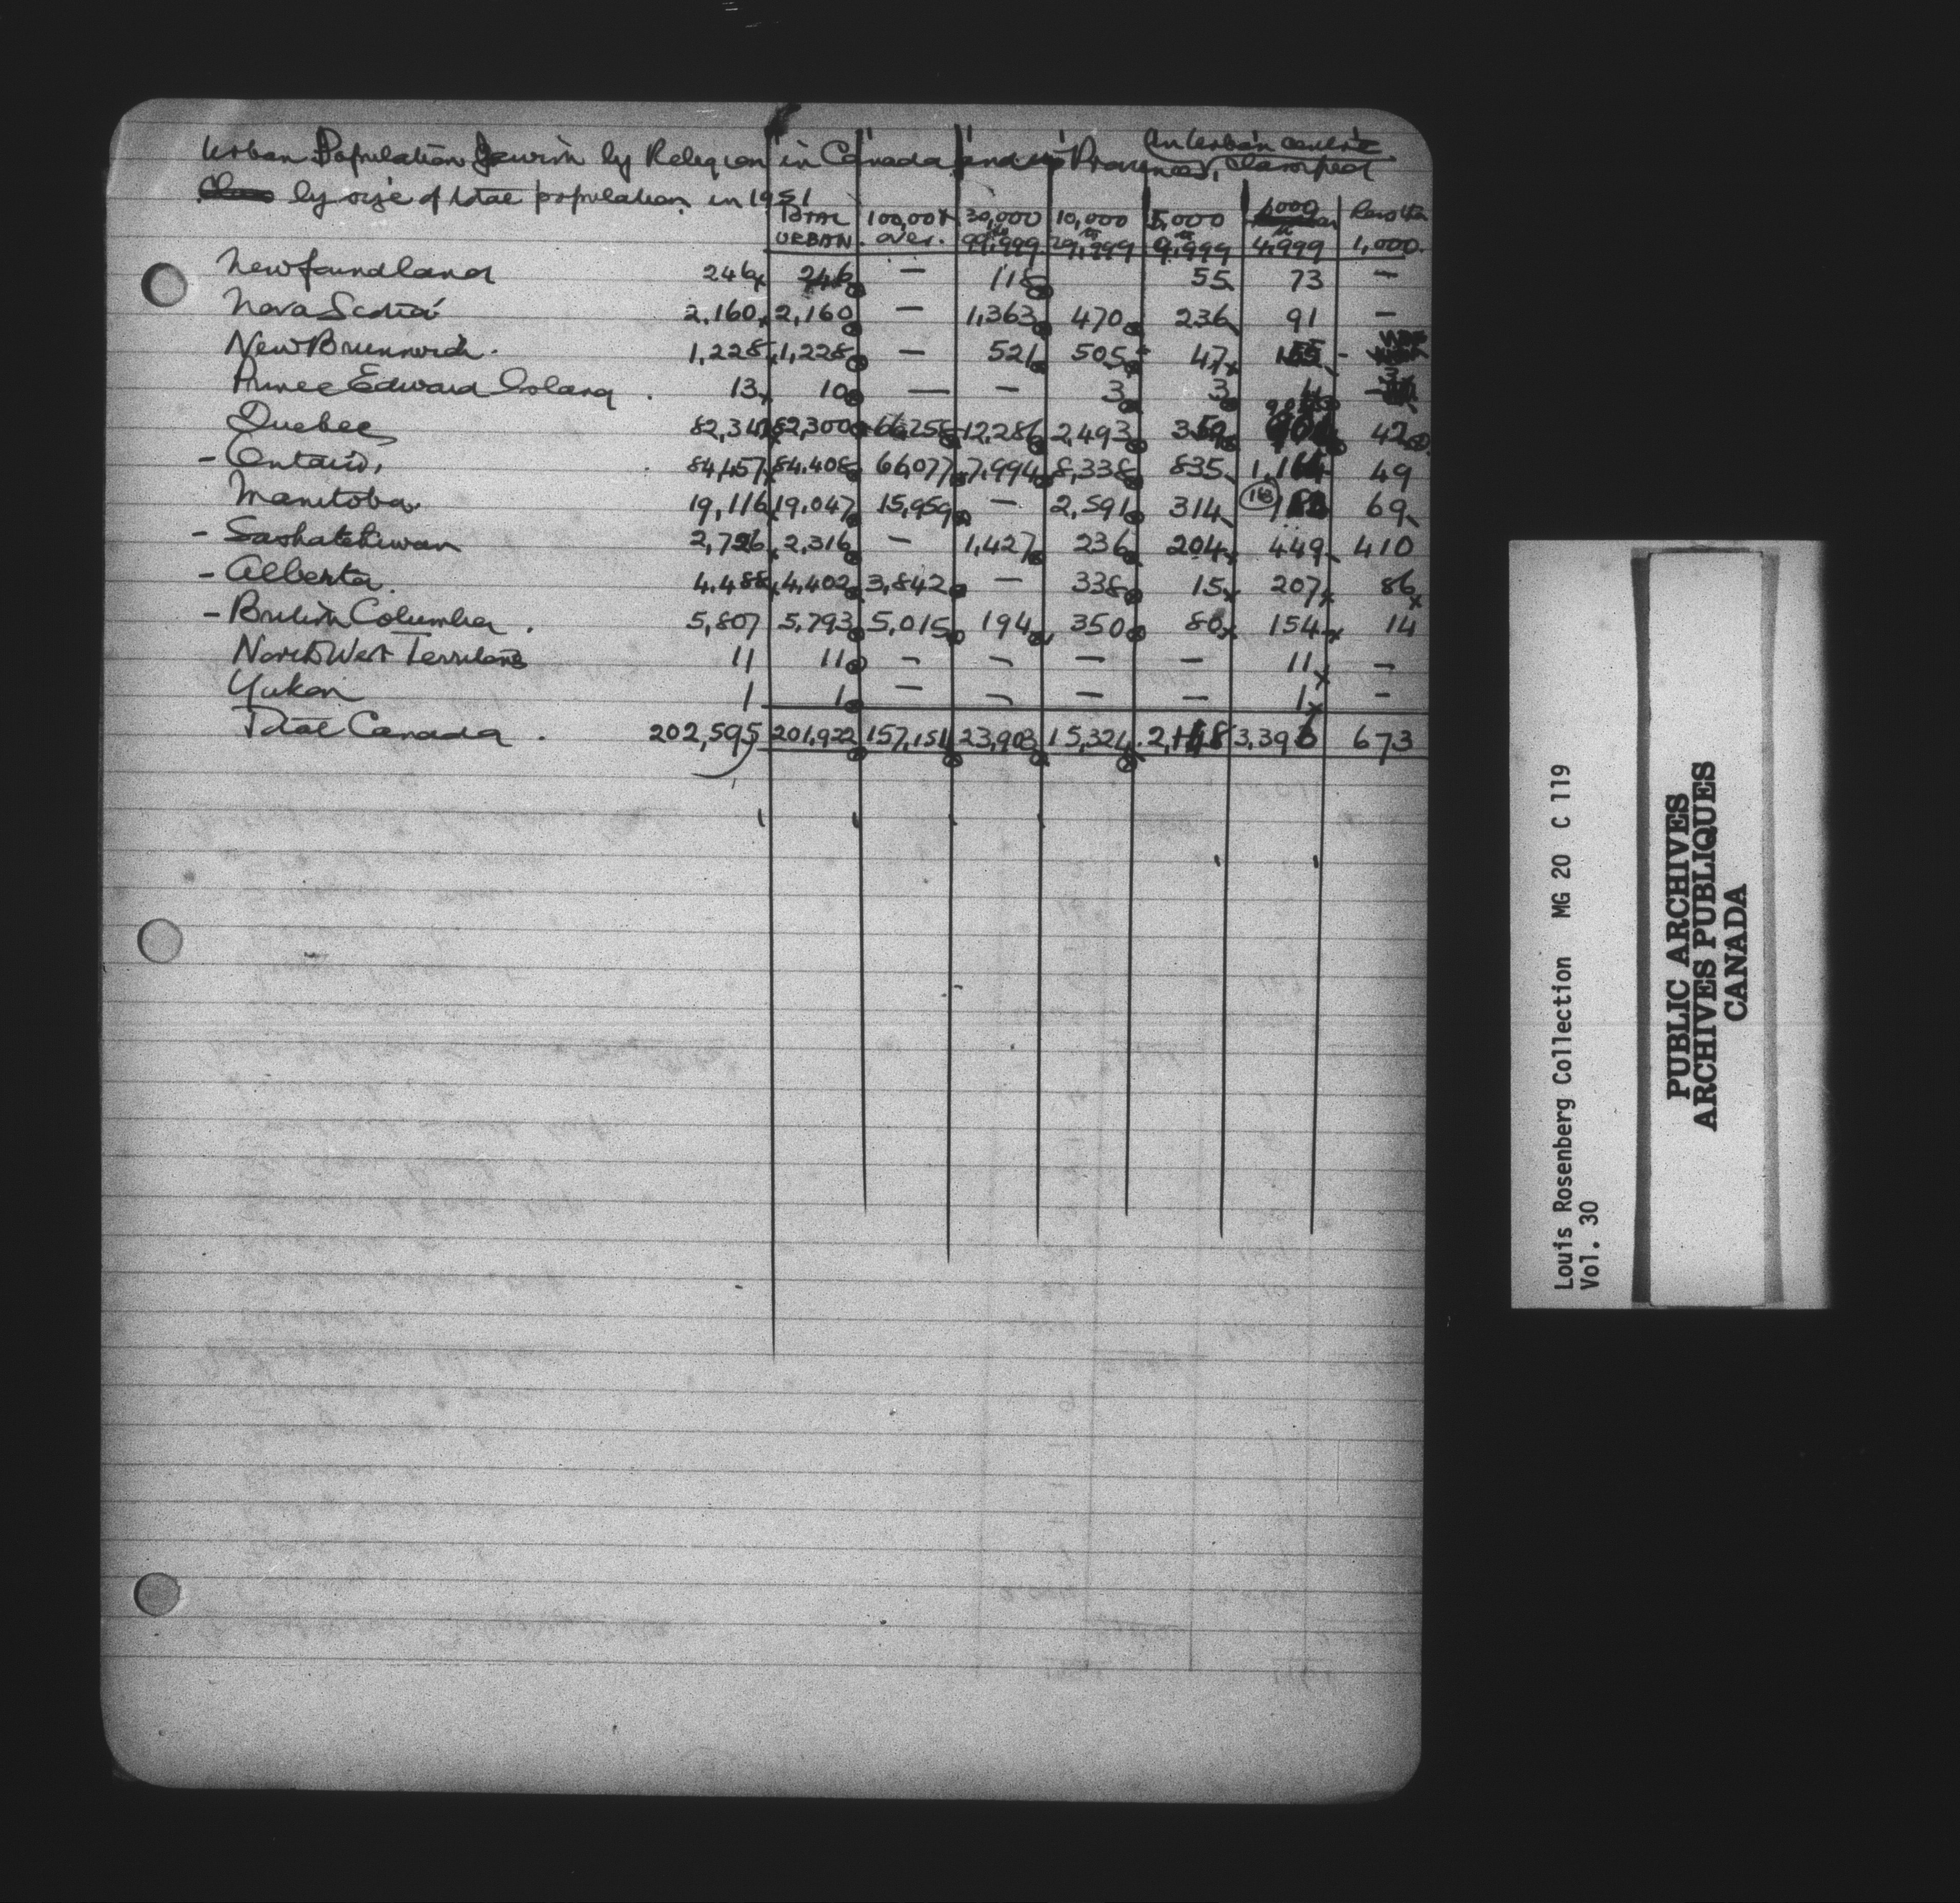 in Urban centre
Urban Population Jewish by Religion in Canada and its Provinces, Classified
by size of total population in 1951
TOTAL URBAN 100,000+ over. 30,000 to 99,999 10,000 to 29,999 5,000 to 9,999 1000 to 4,999 Less than 1,000
Newfoundland 246 246 — 118 55 73 —
Nova Scotia 2,160 2,160 — 1,363 470 236 91 —
New Brunswick. 1,228 1,228 — 521 505 47 155 -
Prince Edward Island . 13 10 — — 3 3 4 3
Quebec 82,342 82,300 66,258 12,286 2,493 359 904 42
- Ontario, 84,457 84,408 66,077 7,994 8,338 835 1,164 49
Manitoba 19,116 19,047 15,959 — 2,591 314 183 69
- Saskatchewan 2,726 2,316 — 1,427 236 204 449 410
- Alberta. 4,488 4,402 3,842 — 338 15 207 86
- British Columbia . 5,807 5,793 5,015 194 350 80 154 14
North West Territories 11 11 — — — — 11 —
Yukon 1 1 — — — — 1 —
Total Canada . 202,595 201,922 157,151 23,903 15,324 2,148 3,396 673
Louis Rosenberg Collection MG 20 C 119
Vol. 30
PUBLIC ARCHIVES
ARCHIVES PUBLIQUES
CANADA